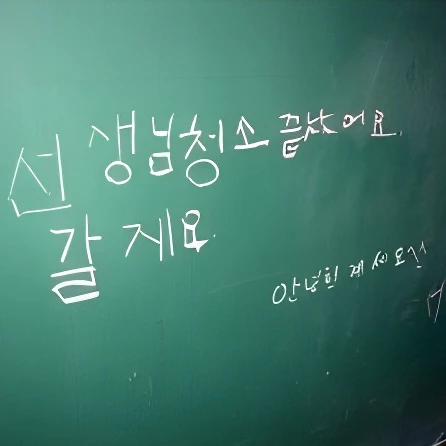 선생님청소끝났어요.
갈게요.
안녕히계세요